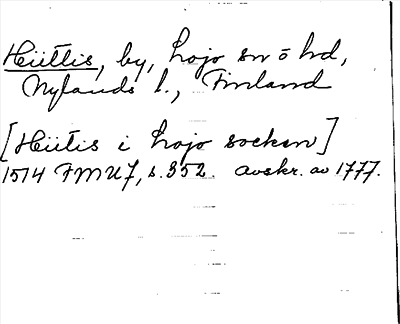 Hiittis, by, Lojo sn o hd,
Nylands l., Finland
[Hiitis i Lojo socken]
1514 FMU 7, s. 352. avskr. av 1777.